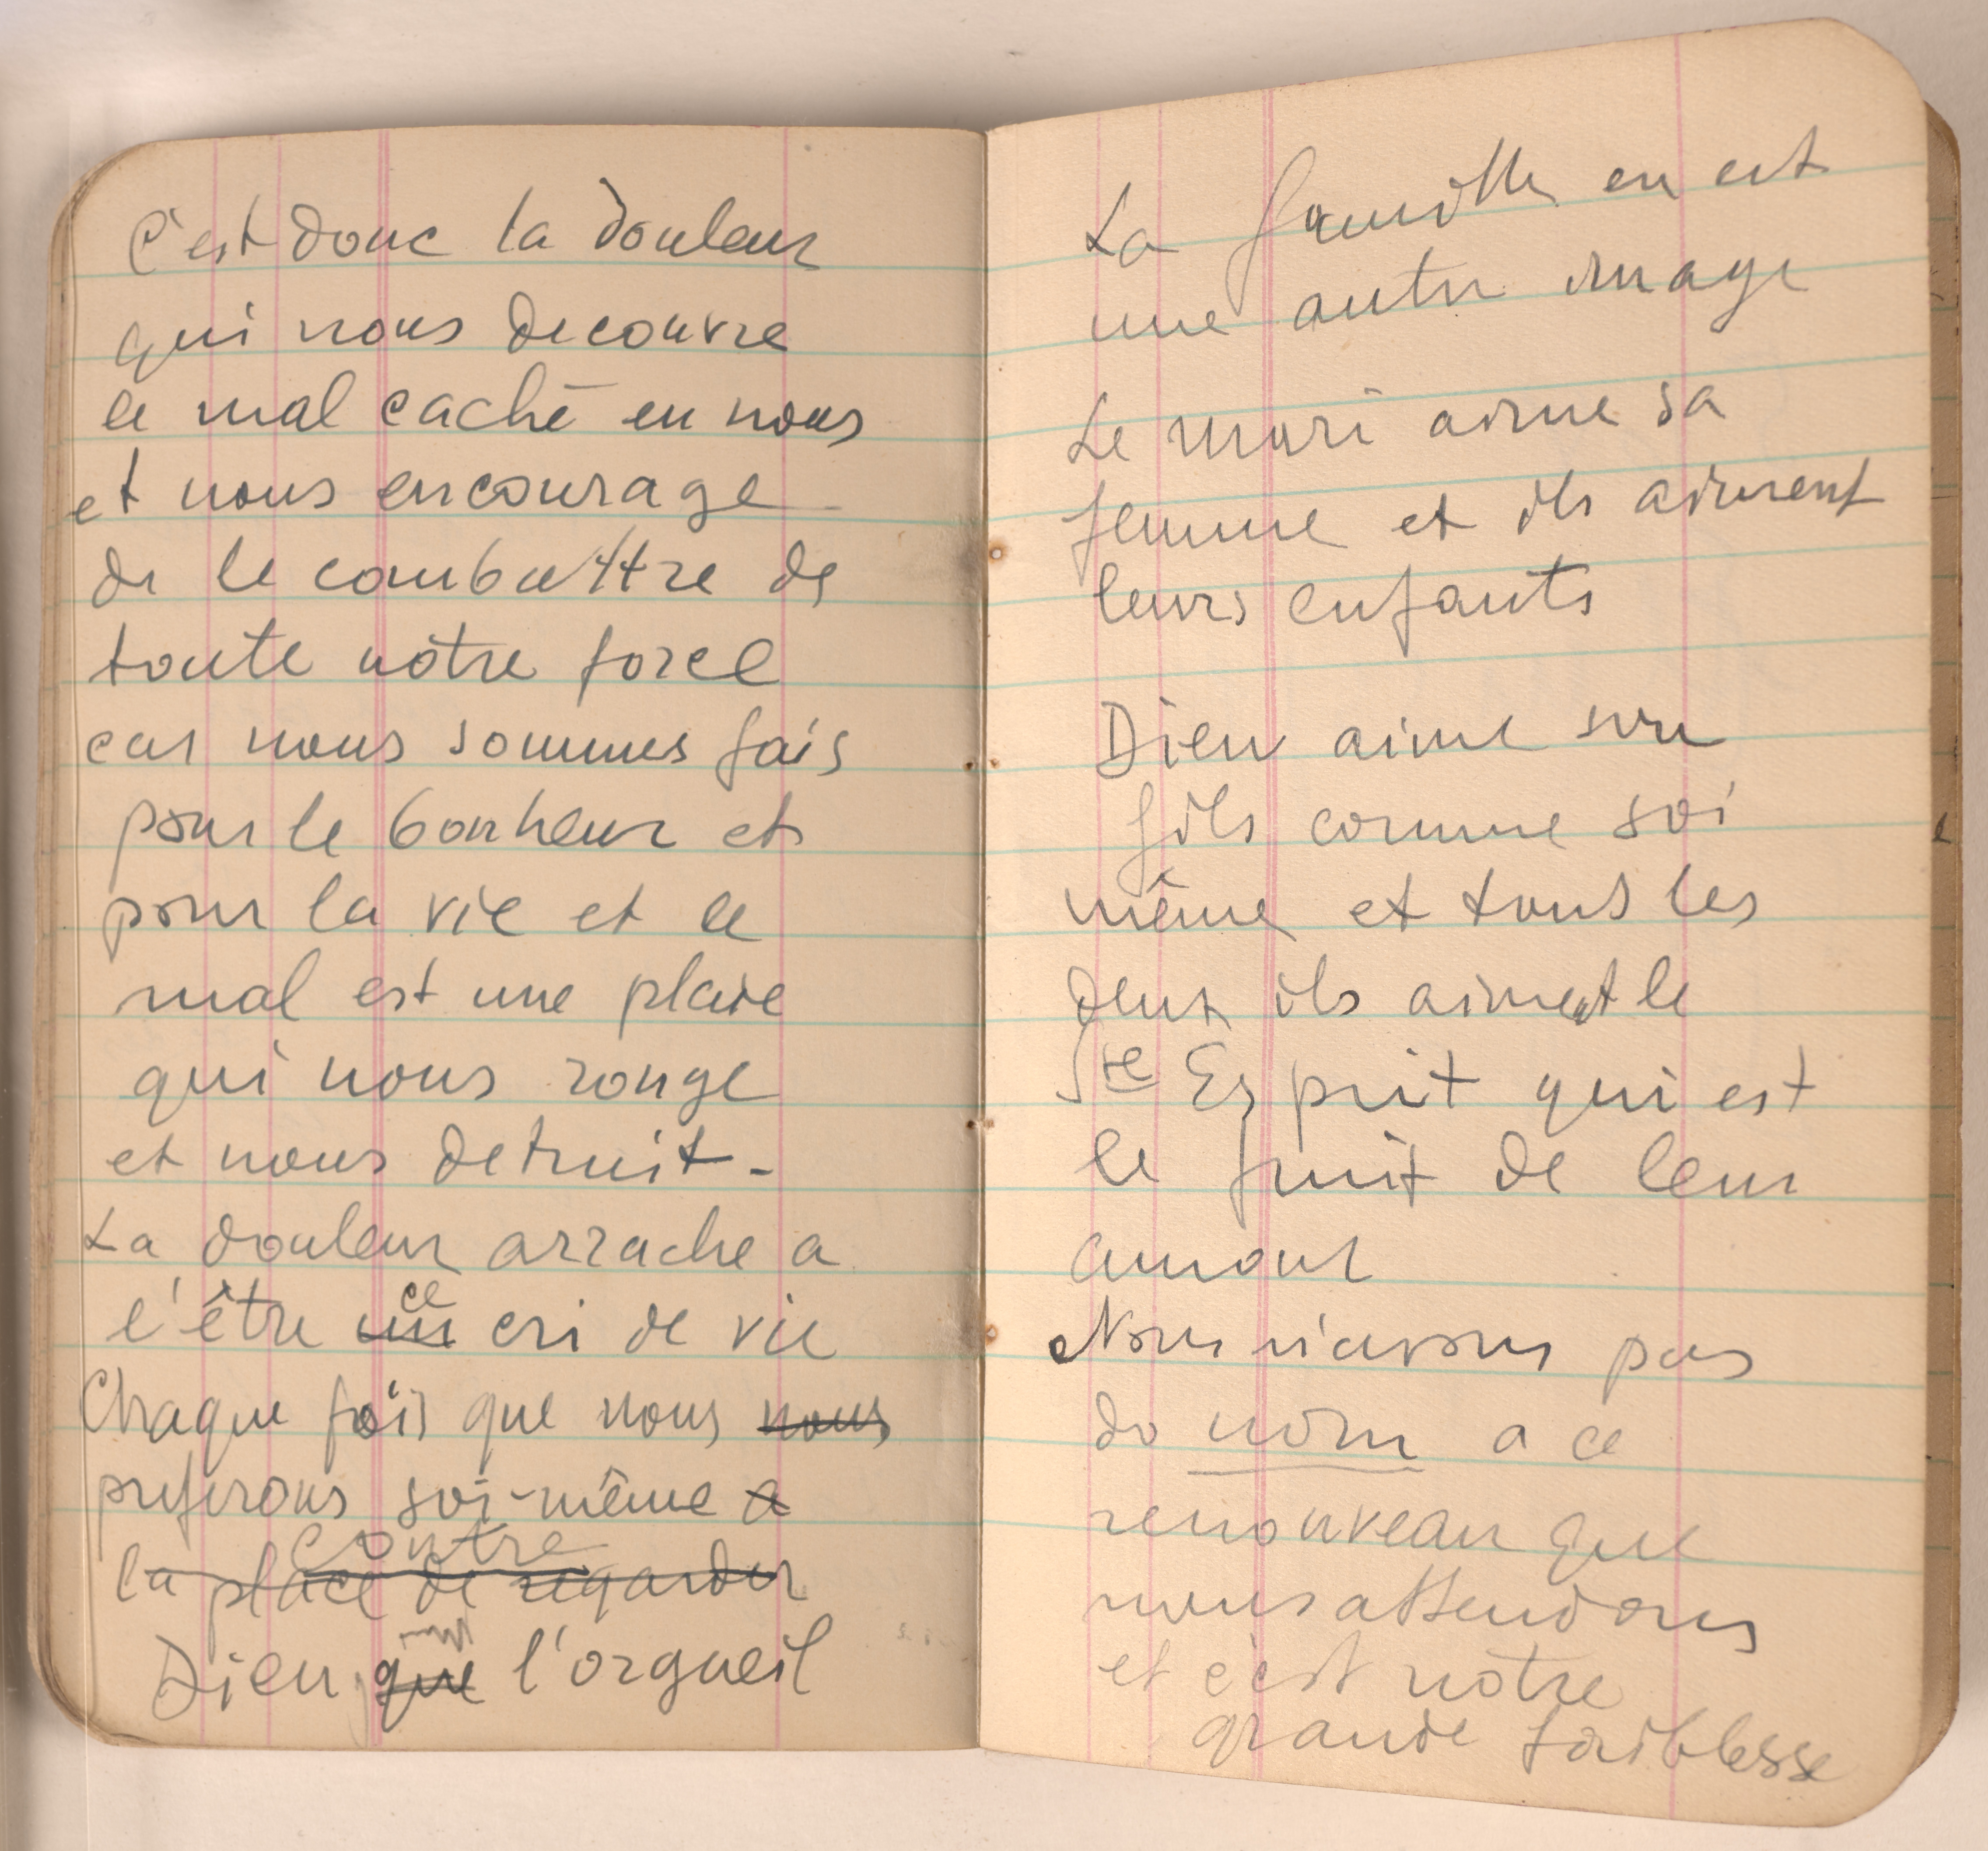 C'est donc la douleur
qui nous decouvre
le mal caché en nous
et nous encourage
de le combattre de
toute nôtre force
car nous sommes fais
pour le bonheur et
pour la vie et le
mal est une plaie
qui nous ronge
et nous detruit -
La douleur arrache a
ce
l'être un cri de vie
Chaque fois que nous nous
preferons soi-même a
contre
la place de regarder
Dieu que l'orgueil
La famille en est
une autre image
Le mari aime sa
femme et ils aiment
leurs enfants
Dieu aime son
fils comme soi
même et tous les
deux ils aiment le
Ste Esprit qui est
le fruit de leur
amour
Nous n'avons pas
do nom a ce
renouveau que
nous attendons
et c'est nôtre
grande faiblesse